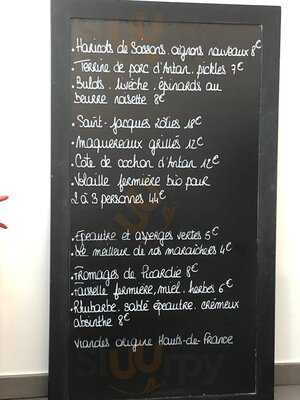 . Haricots de Soissons, oignons nouveaux 8€
. Terrine de porc d'Antan, pickles 7€
. Bulots, livèche, épinards au
beurre noisette 8€
. Saint-Jacques rôties 18€
. maquereaux grillés 12€
. Côte de cochon d'Antan 12€
. Volaille fermière bio pour
2 à 3 personnes 44€
. Epeautre et asperges vertes 5€
. Le meilleur de nos maraîchers 4€
. Fromages de Picardie 8€
. Faisselle fermière, miel, herbes 6€
. Rhubarbe, sablé épeautre, crémeux
absinthe 8€
viandes origine Hauts-de-France